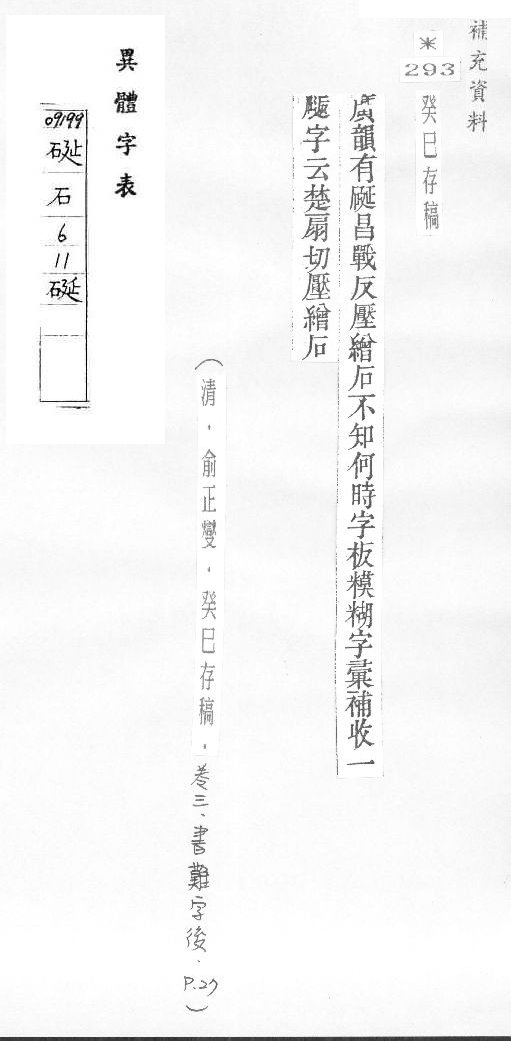 補充資料
※
293
癸巳存稿
廣韻有昌戰反壓繒石不知何時字板模糊字彙補收一
字云楚扇切壓繒石
（清．俞正燮．癸巳存稿．卷三、書難字後．P.27）
異體字表
09199
石
6
11
硟